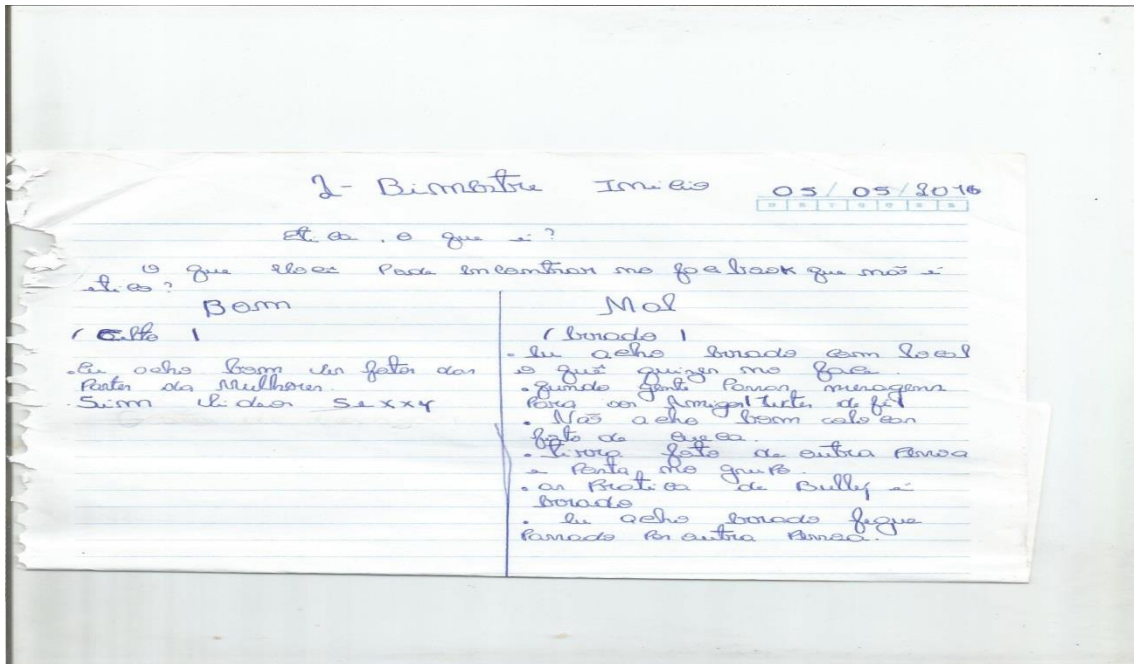 2- Bimestre Inicio 05/05/2016
Etica, o que é?
O que você pode encontrar no facbook que não é
etico?
Bom
(Culto)
.Eu acho bom ver fotos das
Partes da Mulheres.
. Suim videos Sexxy
Mal
(borado)
. Eu acho borado com local
o quê quizer no face.
. qundo gente Passar mesagens
Para os Amigos
. Não acho bom colocar
foto de cueca.
. Tirora foto de outra Pessoa
e Posta no grupo.
. as Pratica de Bully é
borado
. Eu acho borado figue
Passado Por outra Pessoa.